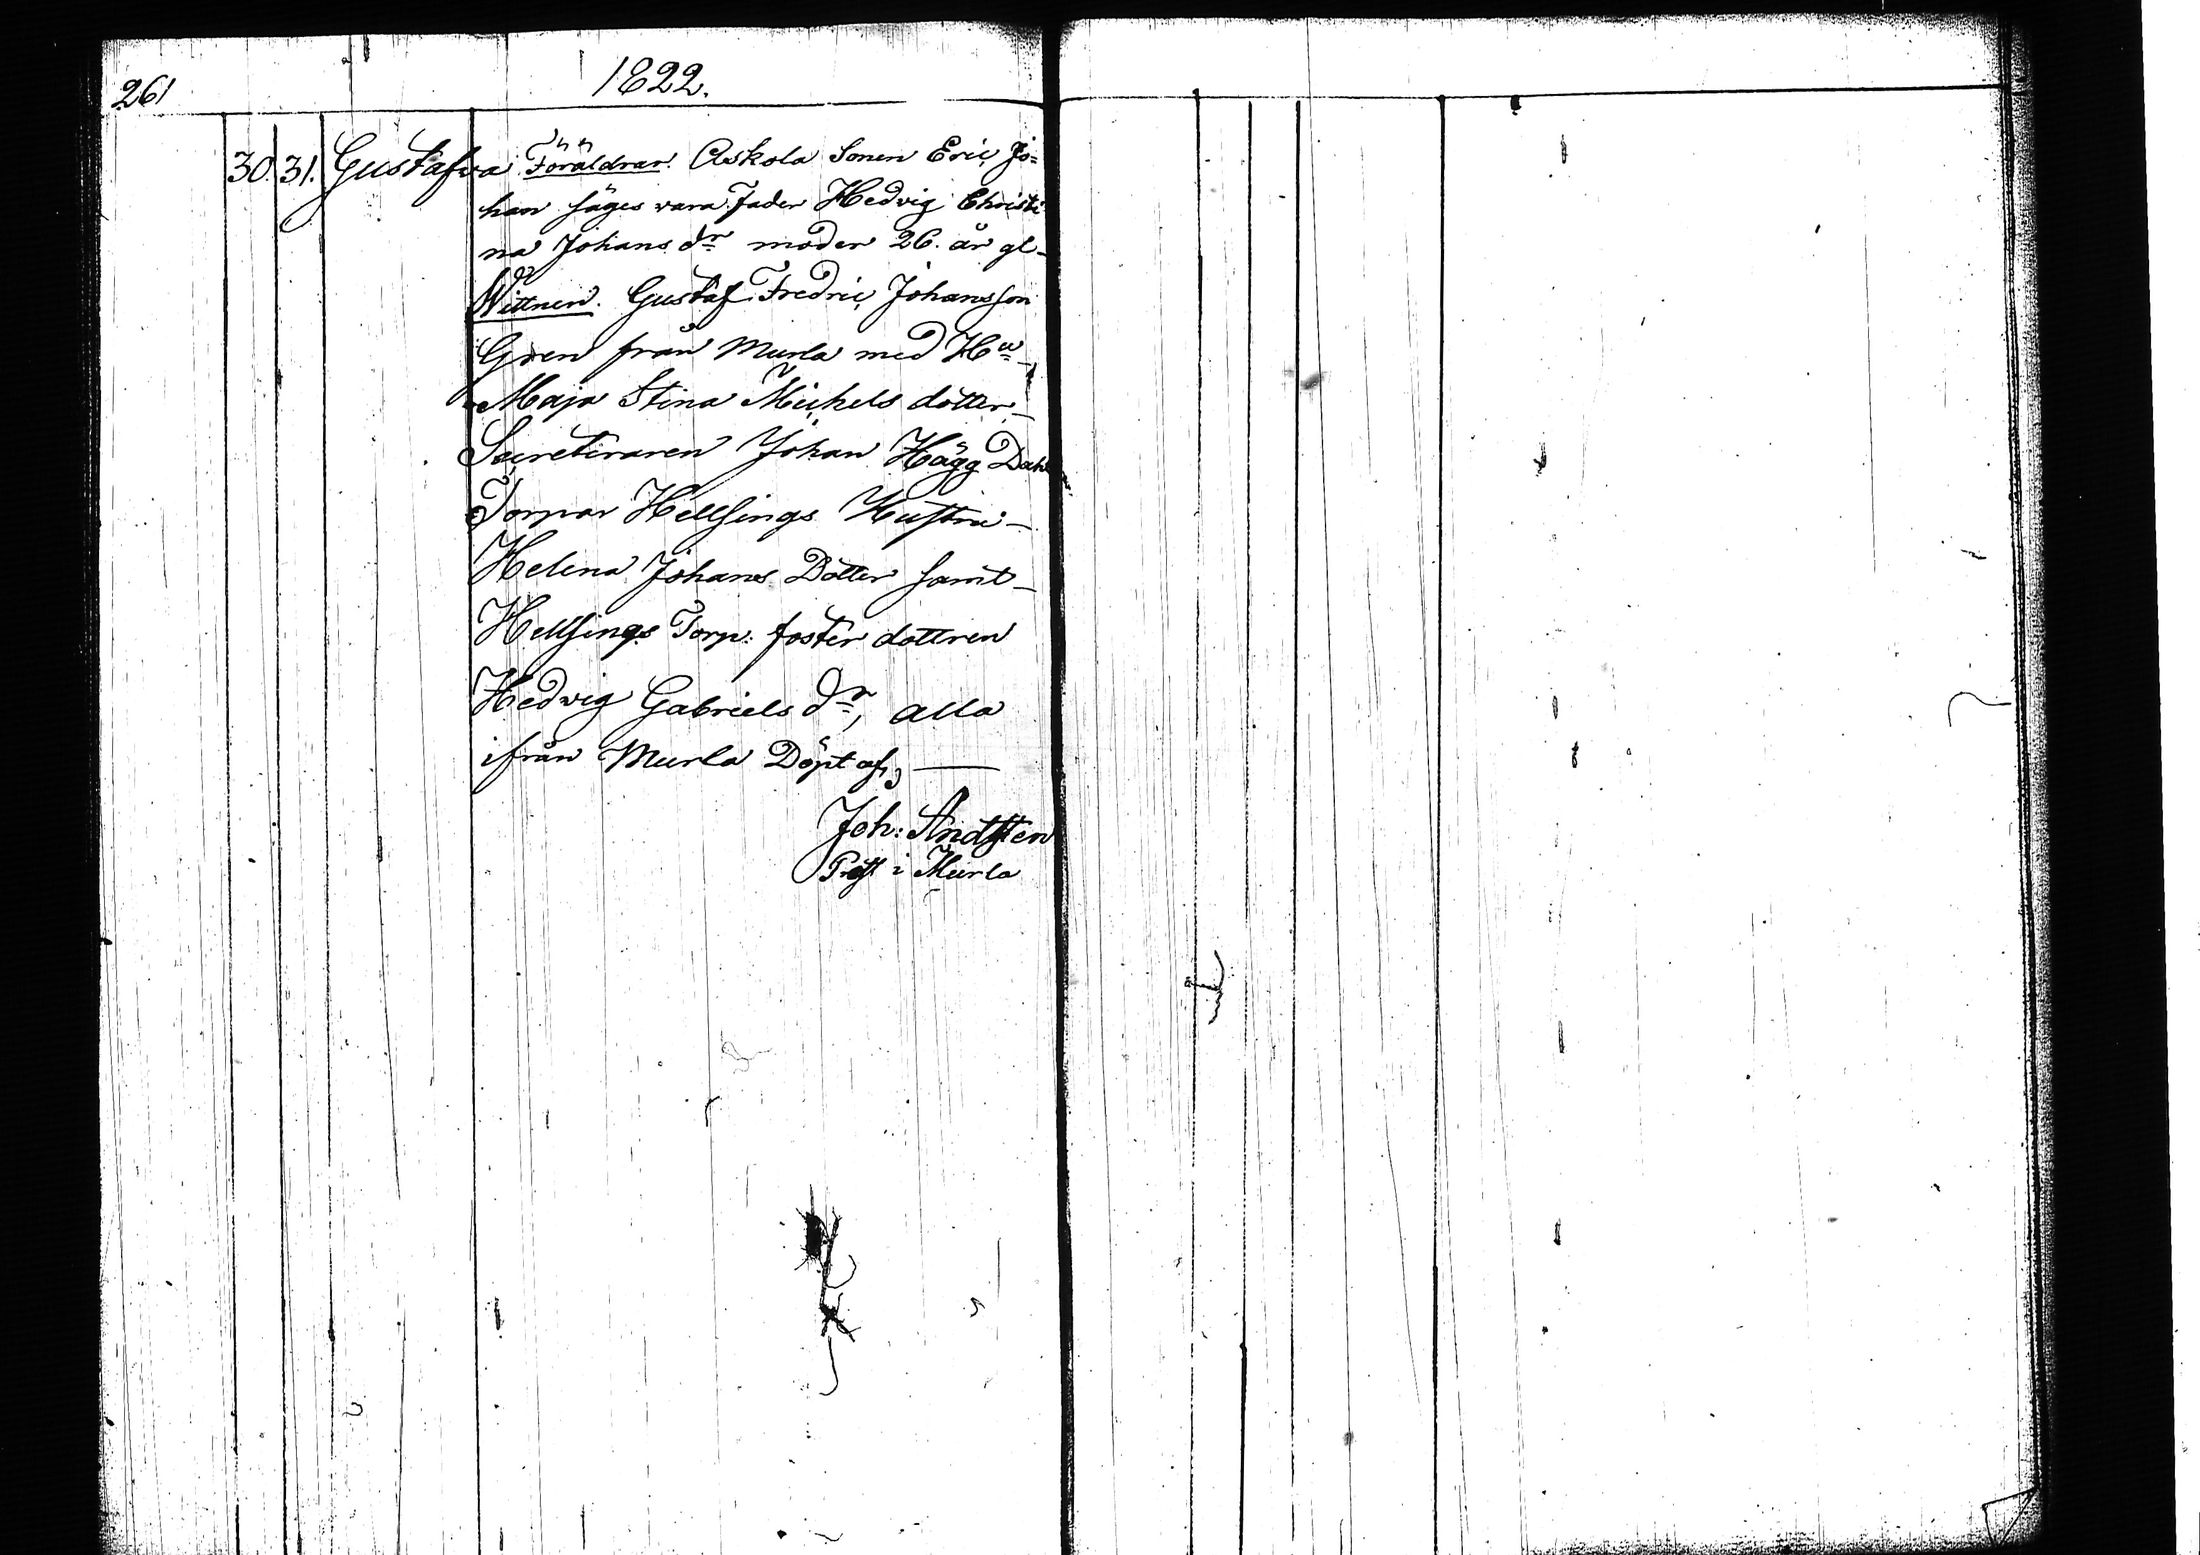 261
1822.
30. 31. Gustafva Föräldrar. Askola Sonen Eric Jo=
han säges vara Fader Hedvig Christi
na Johans dr moder 26. år gl-
Wittnen. Gustaf Fredric Johansson
Gren från Murla med Hu
Maja Stina Michels dotter
Secreteraren Johan Hägg
Torpar Hellsings Hustru
Helena Johans Dotter samt
Hellsings Torp: foster dottren
Hedvig Gabriels dr, alla
ifrån Murla Döpt af
Joh: Andsten
i Murla